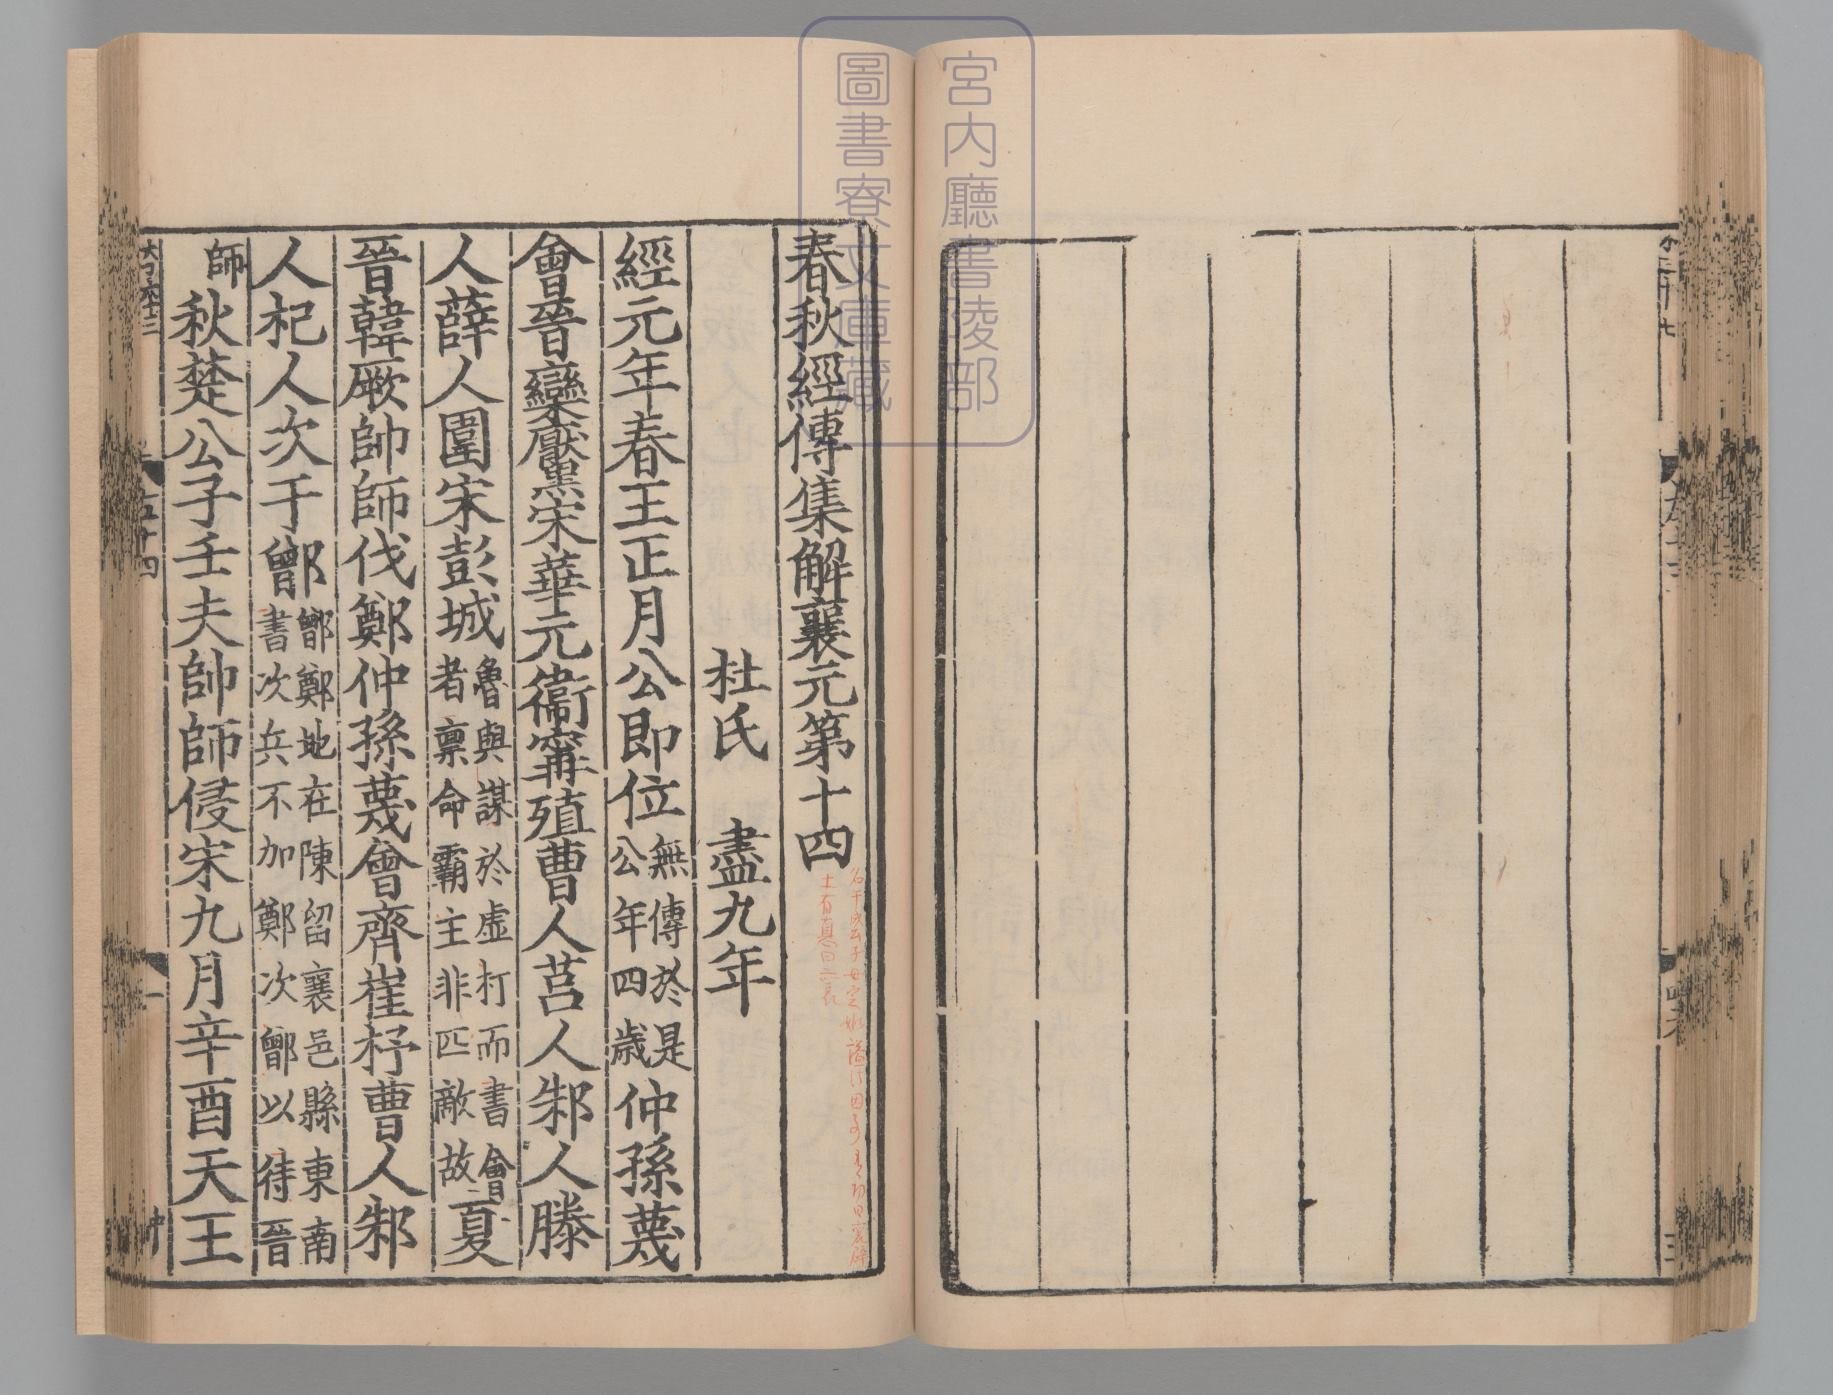 宮内廳書陵部
圖書寮文庫藏
春秋經傳集解襄元第十四
杜氏 盡九年
經元年春王正月公即位無傳於是公年四歲仲孫蔑
會晉欒黶宋華元衞甯殖曹人莒人邾人滕
人薛人圍宋彭城魯與謀於虛朾而書會者稟命霸主非匹敵故夏
晉韓厥帥師伐鄭仲孫蔑會齊崔杼曹人邾
人杞人次于鄫鄫鄭地在陳留襄邑縣東南書次兵不加鄭次鄫以待晉
師秋楚公子壬夫帥師侵宋九月辛酉天王